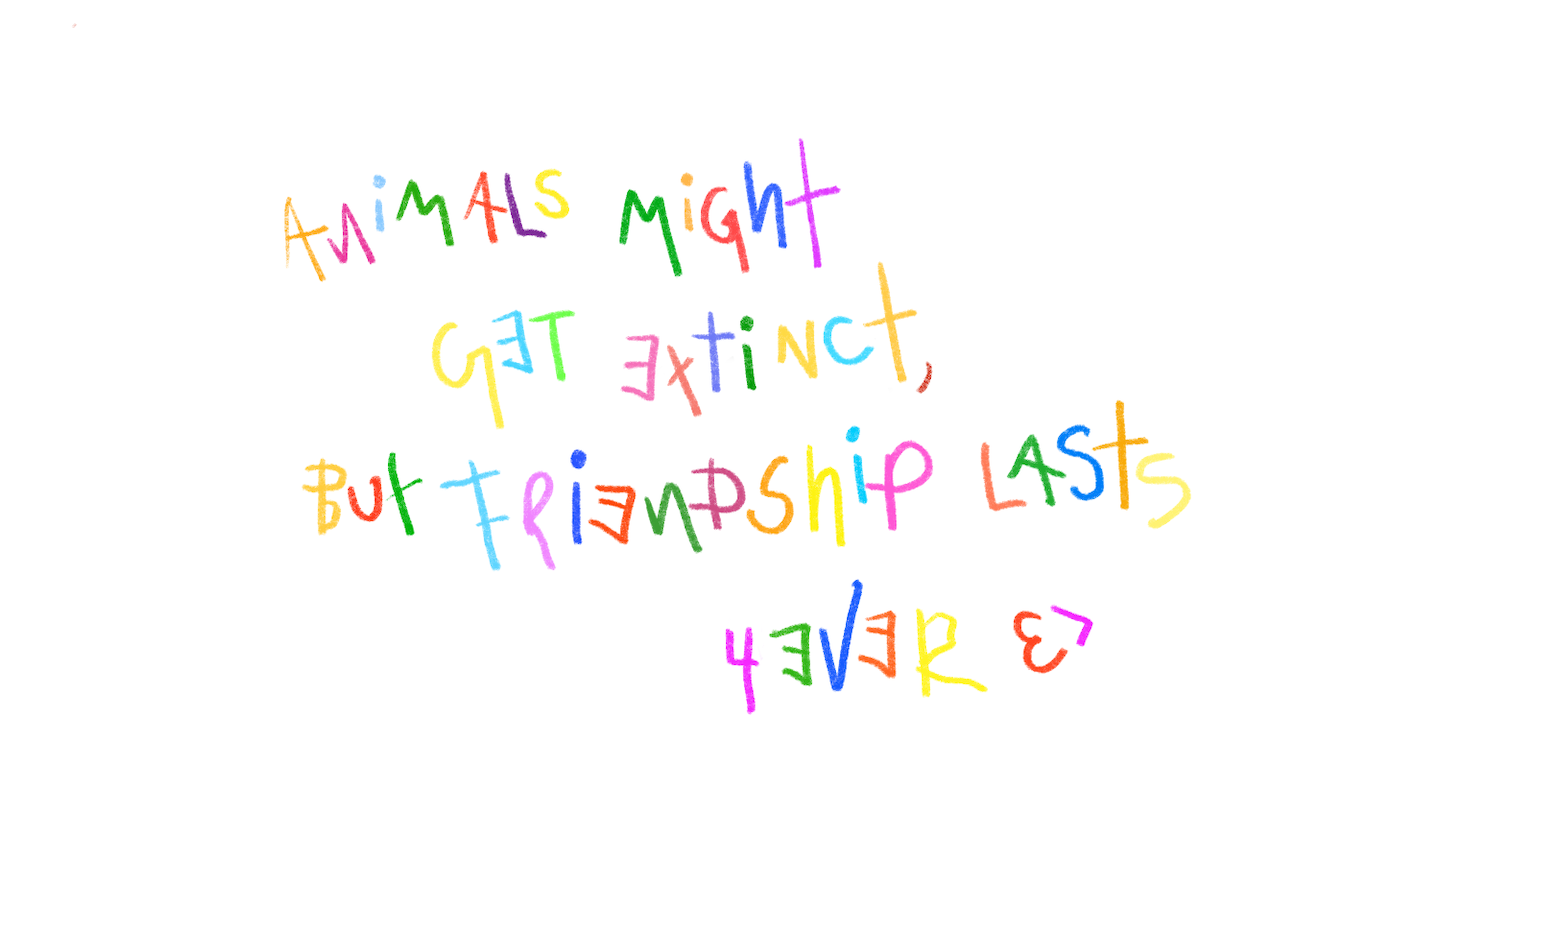 ANiMALS MiGht
GƎT ƎxtiNCt,
But FRiƎnDShiP LAStS
4ƎVƎR Ɛ>